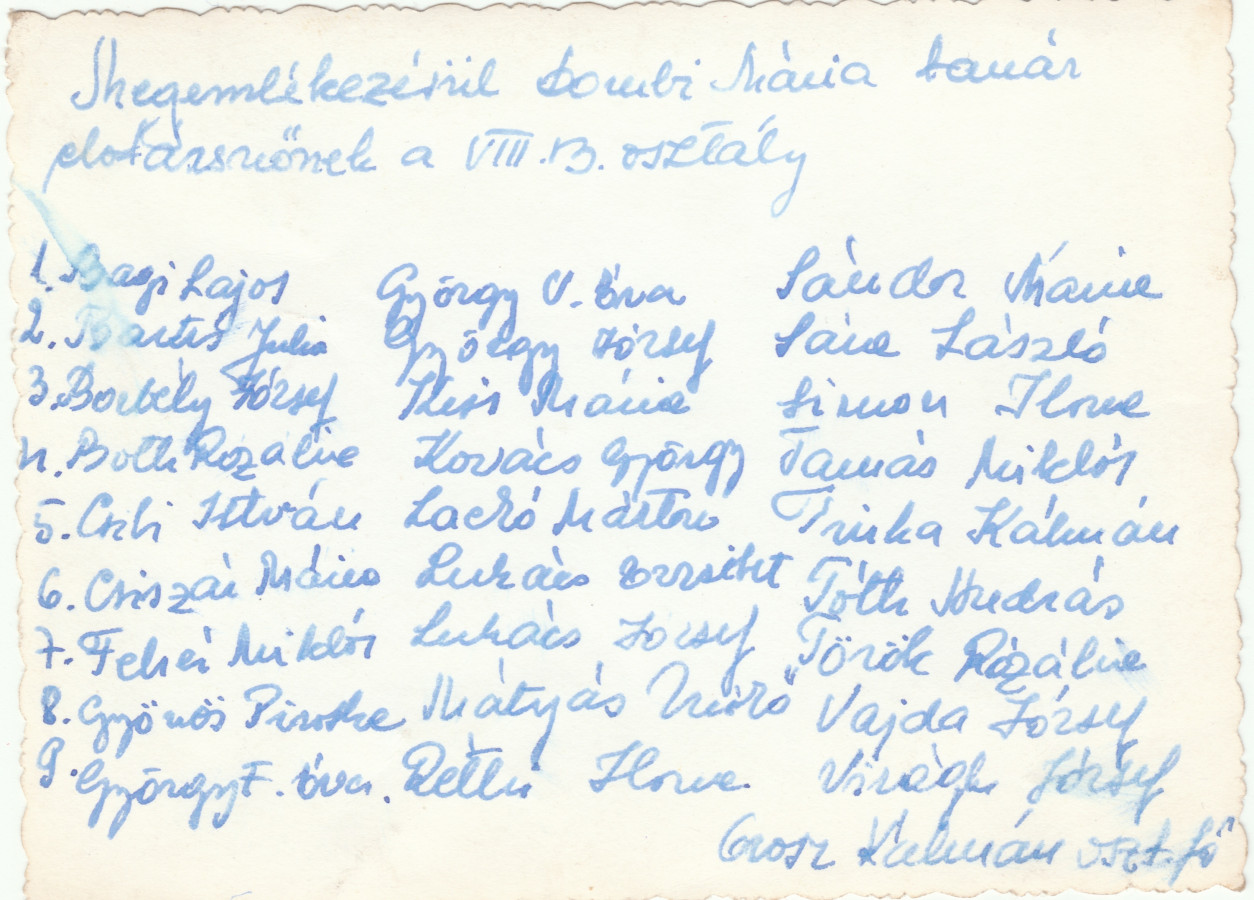 Megemlékezésül Dombi Mária tanár
elvtársnőnek a VIII.B. osztály
1. Bagi Lajos György V. Éva Sándor Mária
2. Bartis Julia György József Sára László
3. Borbély József Kiss Mária Simon Ilona
4. Both Rozália Kovács György Tamás Miklós
5. Csibi István Lackó Márton Kálmán
6. Csiszár Mária Lukács Erzsibet Tóth András
7. Fehér Miklós Lukács József Török Rozália
8. Györös Piroska Mátyás Vajda József
9. György F. Éva. Ilona Virágh József
Grosz Kálmán oszt. fő